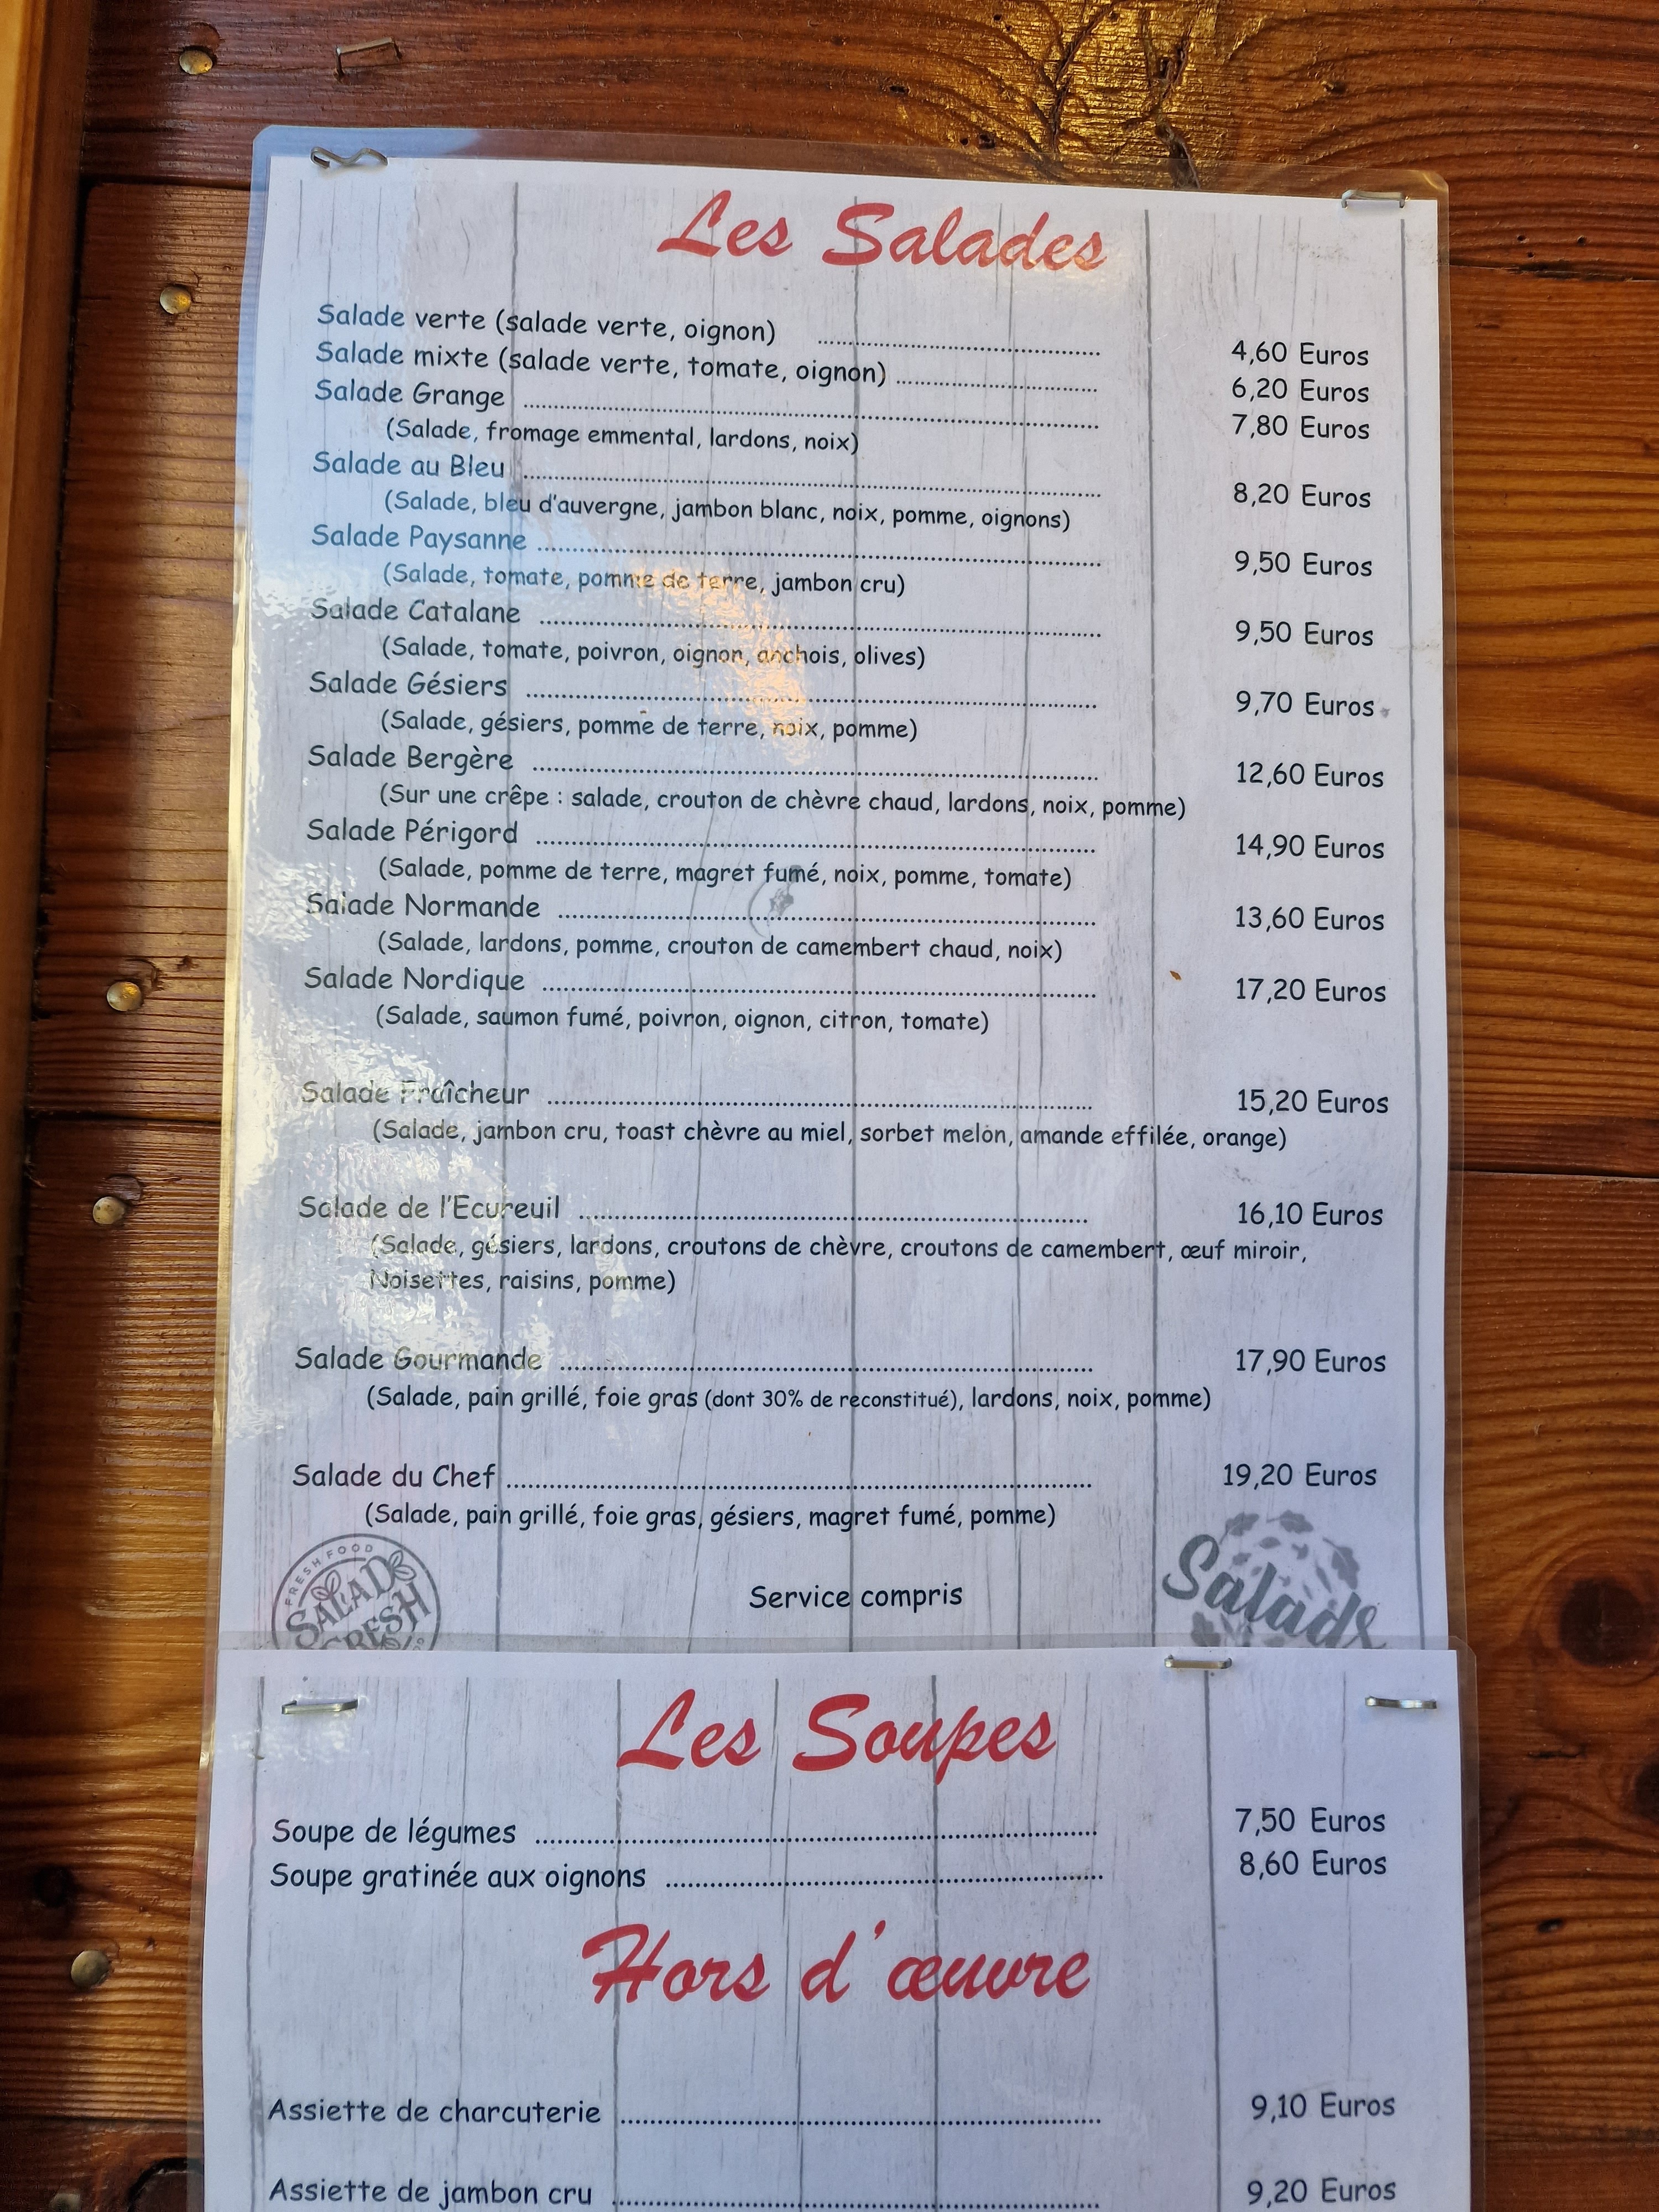 Les Salades
Salade verte (salade verte, oignon) ........ 4,60 Euros
Salade mixte (salade verte, tomate, oignon) ........ 6,20 Euros
Salade Grange ........ 7,80 Euros
(Salade, fromage emmental, lardons, noix)
Salade au Bleu ........ 8,20 Euros
(Salade, bleu d'auvergne, jambon blanc, noix, pomme, oignons)
Salade Paysanne ........ 9,50 Euros
(Salade, tomate, pomme de terre, jambon cru)
Salade Catalane ........ 9,50 Euros
(Salade, tomate, poivron, oignon, anchois, olives)
Salade Gésiers ........ 9,70 Euros
(Salade, gésiers, pomme de terre, noix, pomme)
Salade Bergère ........ 12,60 Euros
(Sur une crêpe : salade, crouton de chèvre chaud, lardons, noix, pomme)
Salade Périgord ........ 14,90 Euros
(Salade, pomme de terre, magret fumé, noix, pomme, tomate)
Salade Normande ........ 13,60 Euros
(Salade, lardons, pomme, crouton de camembert chaud, noix)
Salade Nordique ........ 17,20 Euros
(Salade, saumon fumé, poivron, oignon, citron, tomate)
Salade Fraîcheur ........ 15,20 Euros
(Salade, jambon cru, toast chèvre au miel, sorbet melon, amande effilée, orange)
Salade de l'Ecureuil ........ 16,10 Euros
(Salade, gésiers, lardons, croutons de chèvre, croutons de camembert, œuf miroir,
Noisettes, raisins, pomme)
Salade Gourmande ........ 17,90 Euros
(Salade, pain grillé, foie gras (dont 30% de reconstitué), lardons, noix, pomme)
Salade du Chef ........ 19,20 Euros
(Salade, pain grillé, foie gras, gésiers, magret fumé, pomme)
FRESH FOOD
SALAD
FRESH
Service compris
Salads
Les Soupes
Soupe de légumes ........ 7,50 Euros
Soupe gratinée aux oignons ........ 8,60 Euros
Hors d'œuvre
Assiette de charcuterie ........ 9,10 Euros
Assiette de jambon cru ........ 9,20 Euros